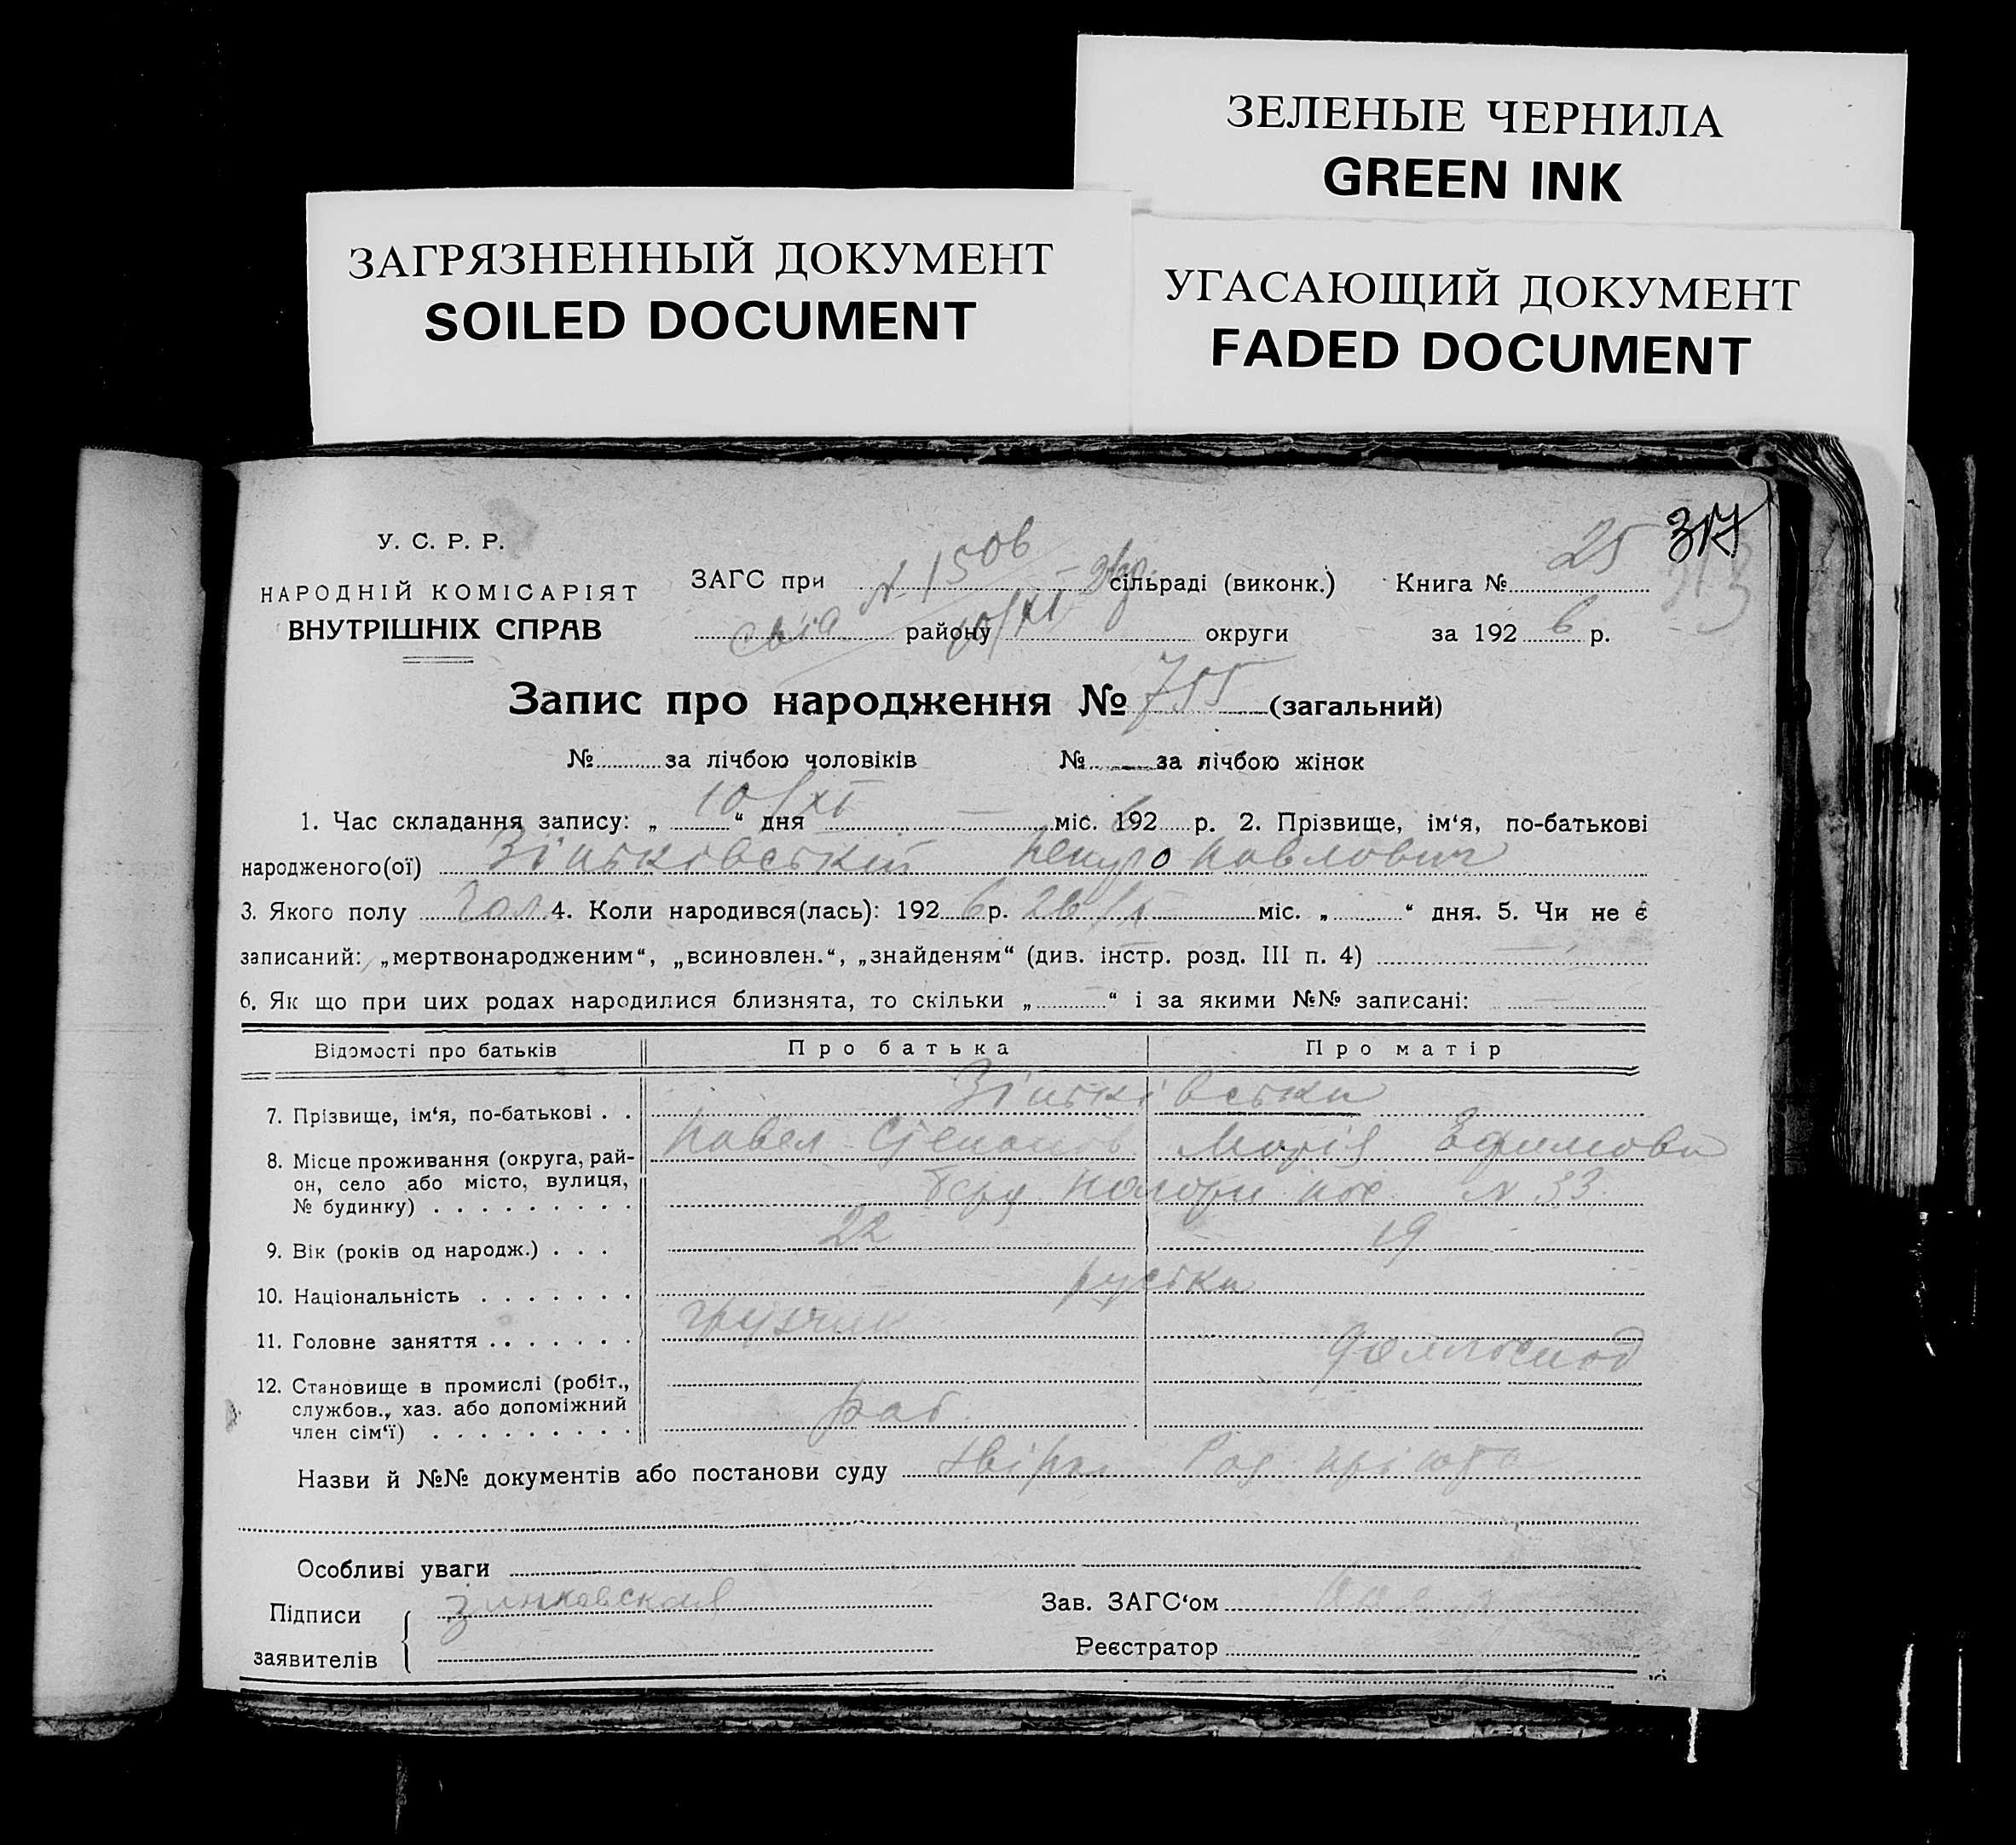 ЗЕЛЕНЫЕ ЧЕРНИЛА
GREEN INK
ЗАГРЯЗНЕННЫЙ ДОКУМЕНТ
SOILED DOCUMENT
УГАСАЮЩИЙ ДОКУМЕНТ
FADED DOCUMENT
317
У. С. Р. Р.
НАРОДНІЙ КОМІСАРІЯТ
ВНУТРІШНІХ СПРАВ
ЗАГС при № 1506 сільраді (виконк.) Книга № 25
району 10/XI округи за 192 6 р.
Запис про народження № 755 (загальний)
№ за лічбою чоловіків № за лічбою жінок
1. Час складання запису: „ 10/XI “ дня — міс. 192 6 р. 2. Прізвище, ім‘я, по-батькові
народженого(ої) Зіньковський Павлович
3. Якого полу Чол 4. Коли народився(лась): 192 6 р. 26/X міс. „ “ дня. 5. Чи не є
записаний: „мертвонародженим“, „всиновлен.“, „знайденям“ (див. інстр. розд. III п. 4) —
6. Як що при цих родах народилися близнята, то скільки „ — “ і за якими №№ записані: —
Відомості про батьків Про батька Про матір
7. Прізвище, ім‘я, по-батькові . . Зіньківськи
Павел Степанов Марія Ефимовн
8. Місце проживання (округа, рай-
он, село або місто, вулиця,
№ будинку) . . . . . . . . . № 33
9. Вік (років од народж.) . . . 22 19
10. Національність . . . . . . . руськи
11. Головне заняття . . . . . . . грузчик домгоспод
12. Становище в промислі (робіт.,
службов., хаз. або допоміжний
член сім‘ї) . . . . . . . . . раб.
Назви й №№ документів або постанови суду Род пріюта
Особливі уваги
Підписи Зинковская Зав. ЗАГС‘ом
заявителів Реєстратор